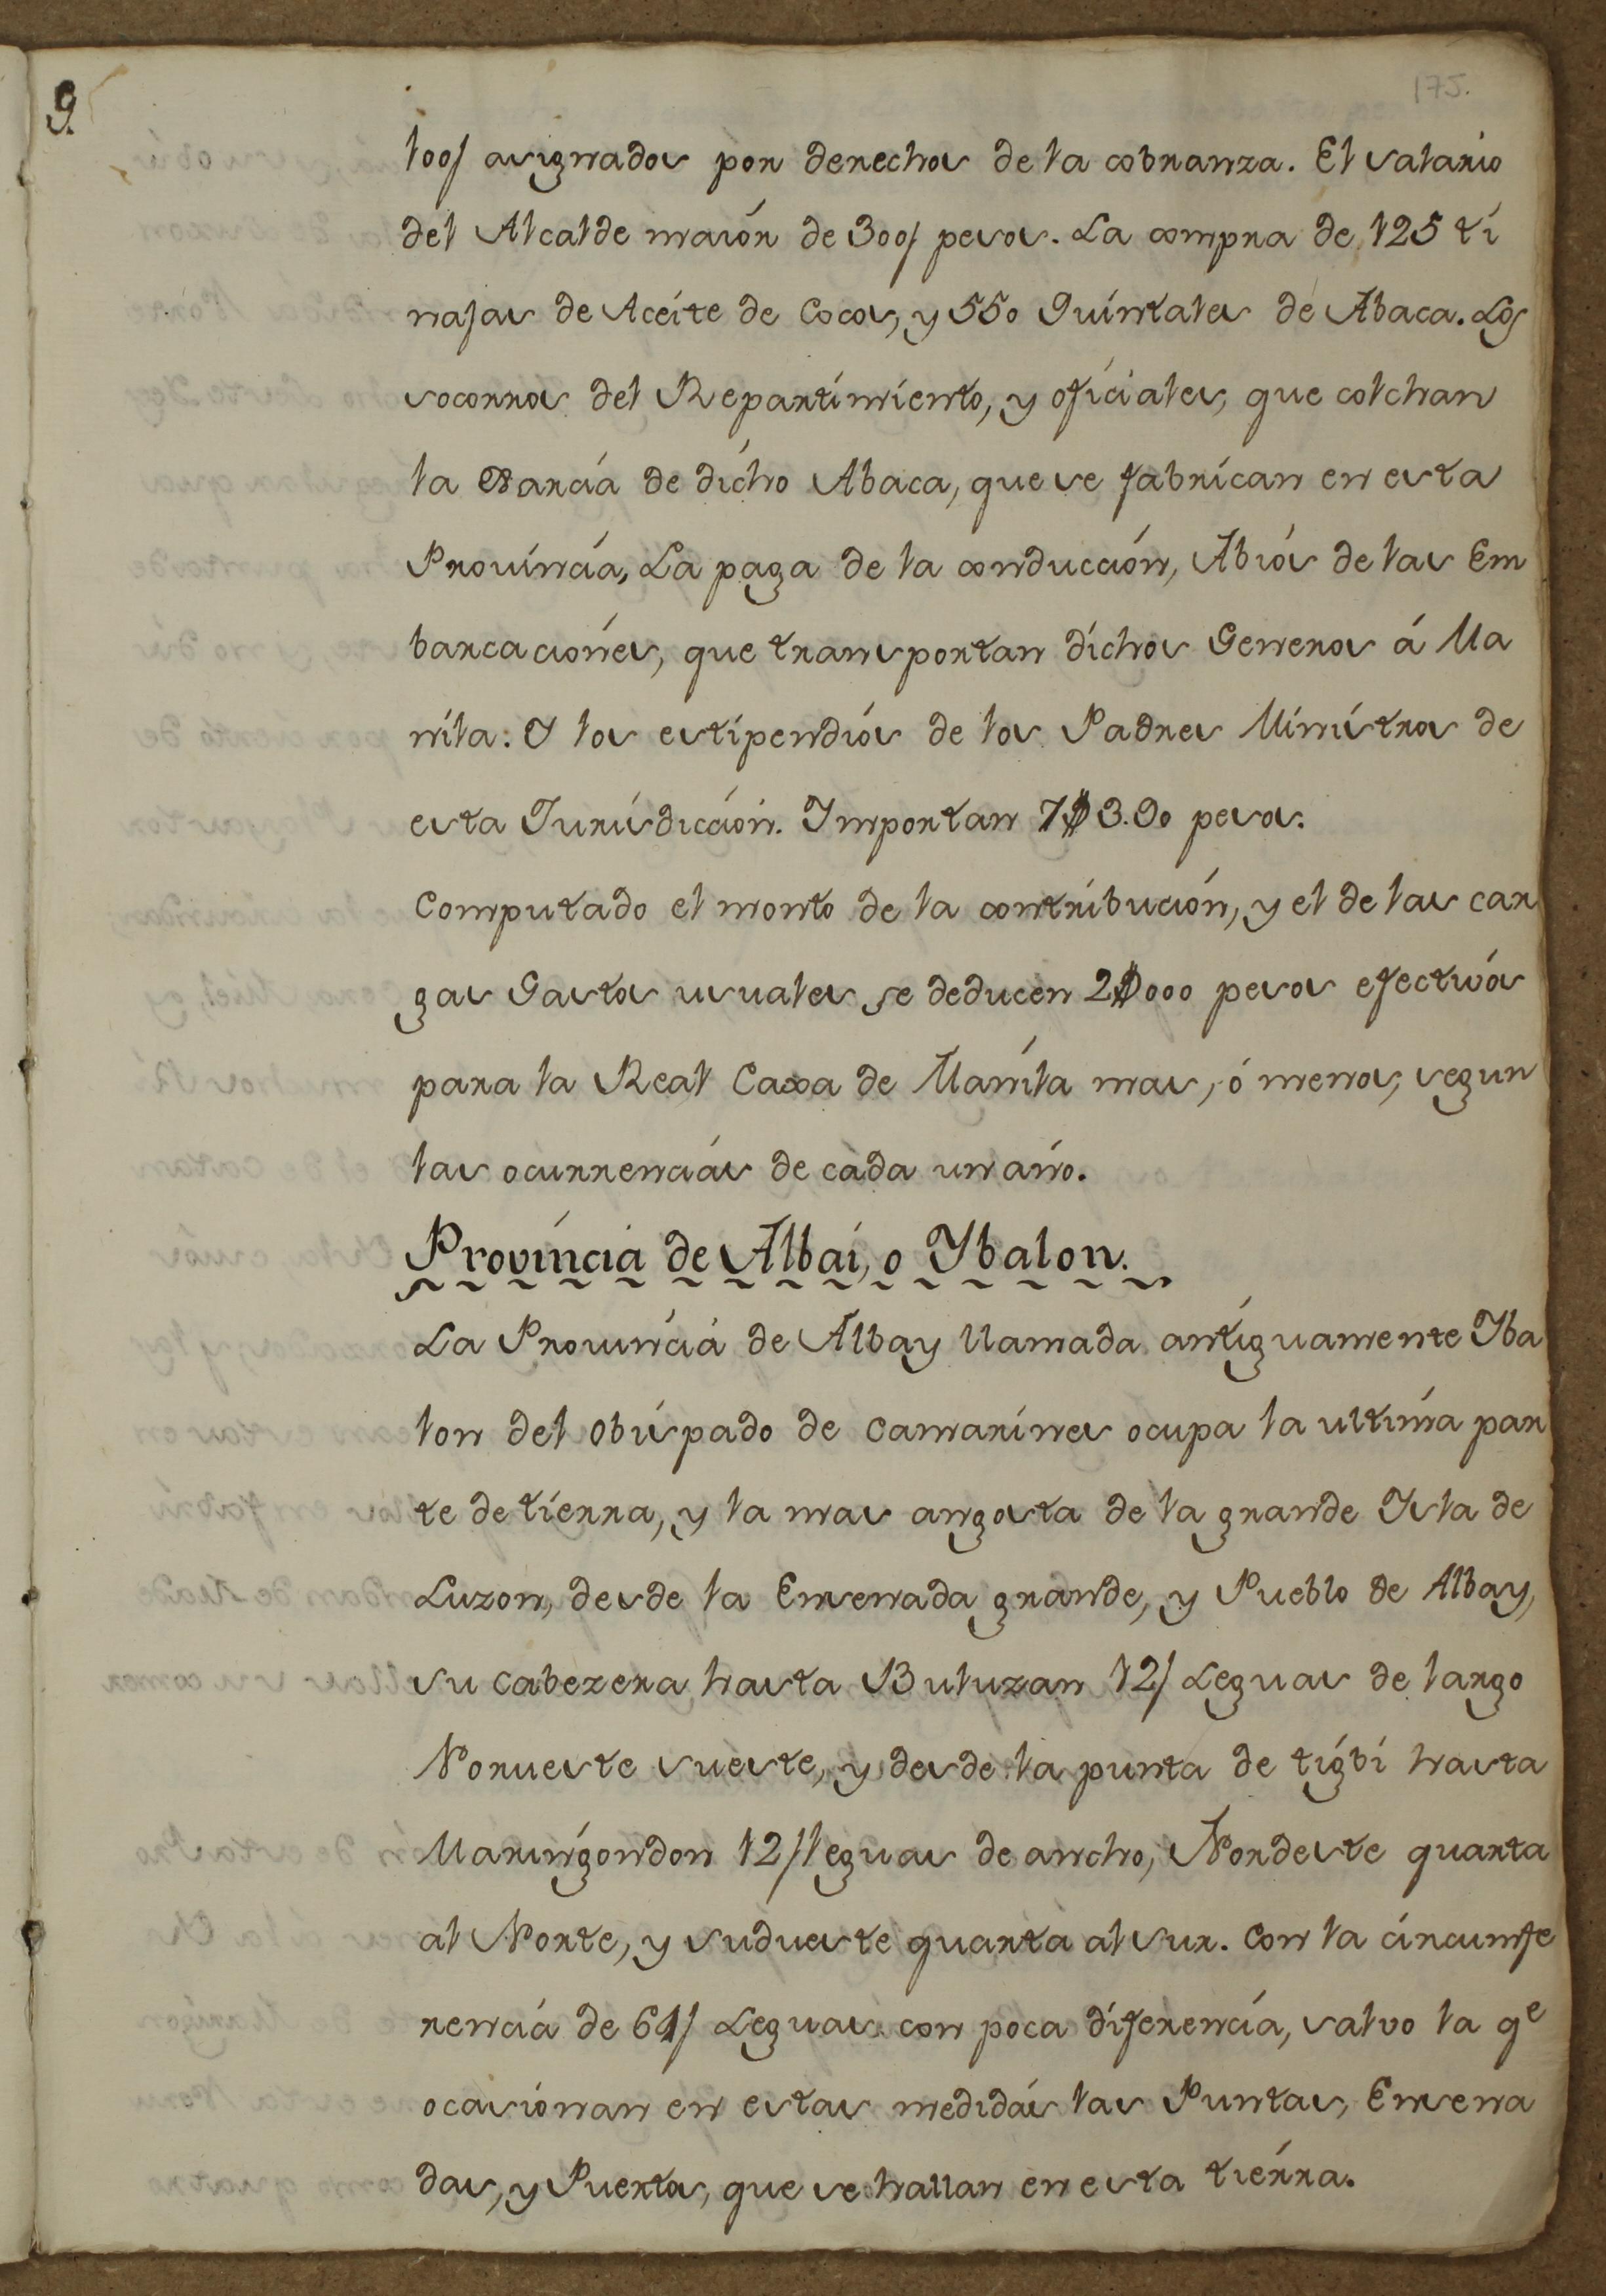 9.
175.
los asignados por derechos de la cobranza. El salario
del Alcalde maión de 300 pesos. La compra de 125 ti
najas de Aceite de Cocos, y 550 Quintales de Abaca. Los
socorros del Repartimiento, y oficiales, que colchan
la Xarcia de dicho Abaca, que se fabrican en esta
Provincia, La paga de la conduccion, Abios de las Em
barcaciones, que transportan dichos Generos á Ma
nila: Y los estipendios de los Padres Ministros de
esta Jurisdiccion. Importan 7$3.90 pesos.
Computado el monto de la contribucion, y el de las car
gas Gastos usuales se deducen 2$000 pesos efectivos
para la Real Caxa de Manila mas, ó menos, segun
las ocurrencias de cada un año.
Provincia de Albai, o Ybalon.
La Provincia de Albay llamada antiguamente Yba
lon del Obispado de Camarines ocupa la ultima par
te de tierra, y la mas angosta de la grande Ysla de
Luzon, desde la Ensenada grande, y Pueblo de Albay,
su Cabezera, hasta Buluzan 12 Leguas de largo
Norueste sueste, y desde la punta de tigbi hasta
Maringondon 12 leguas de ancho, Nordeste quarta
al Norte, y sudueste quarta al sur. Con la circumfe
rencia de 61 Leguas con poca diferencia, salvo la qe
ocasionan en estas medidas las Puntas, Ensena
das, y Puertos, que se hallan en esta tierra.